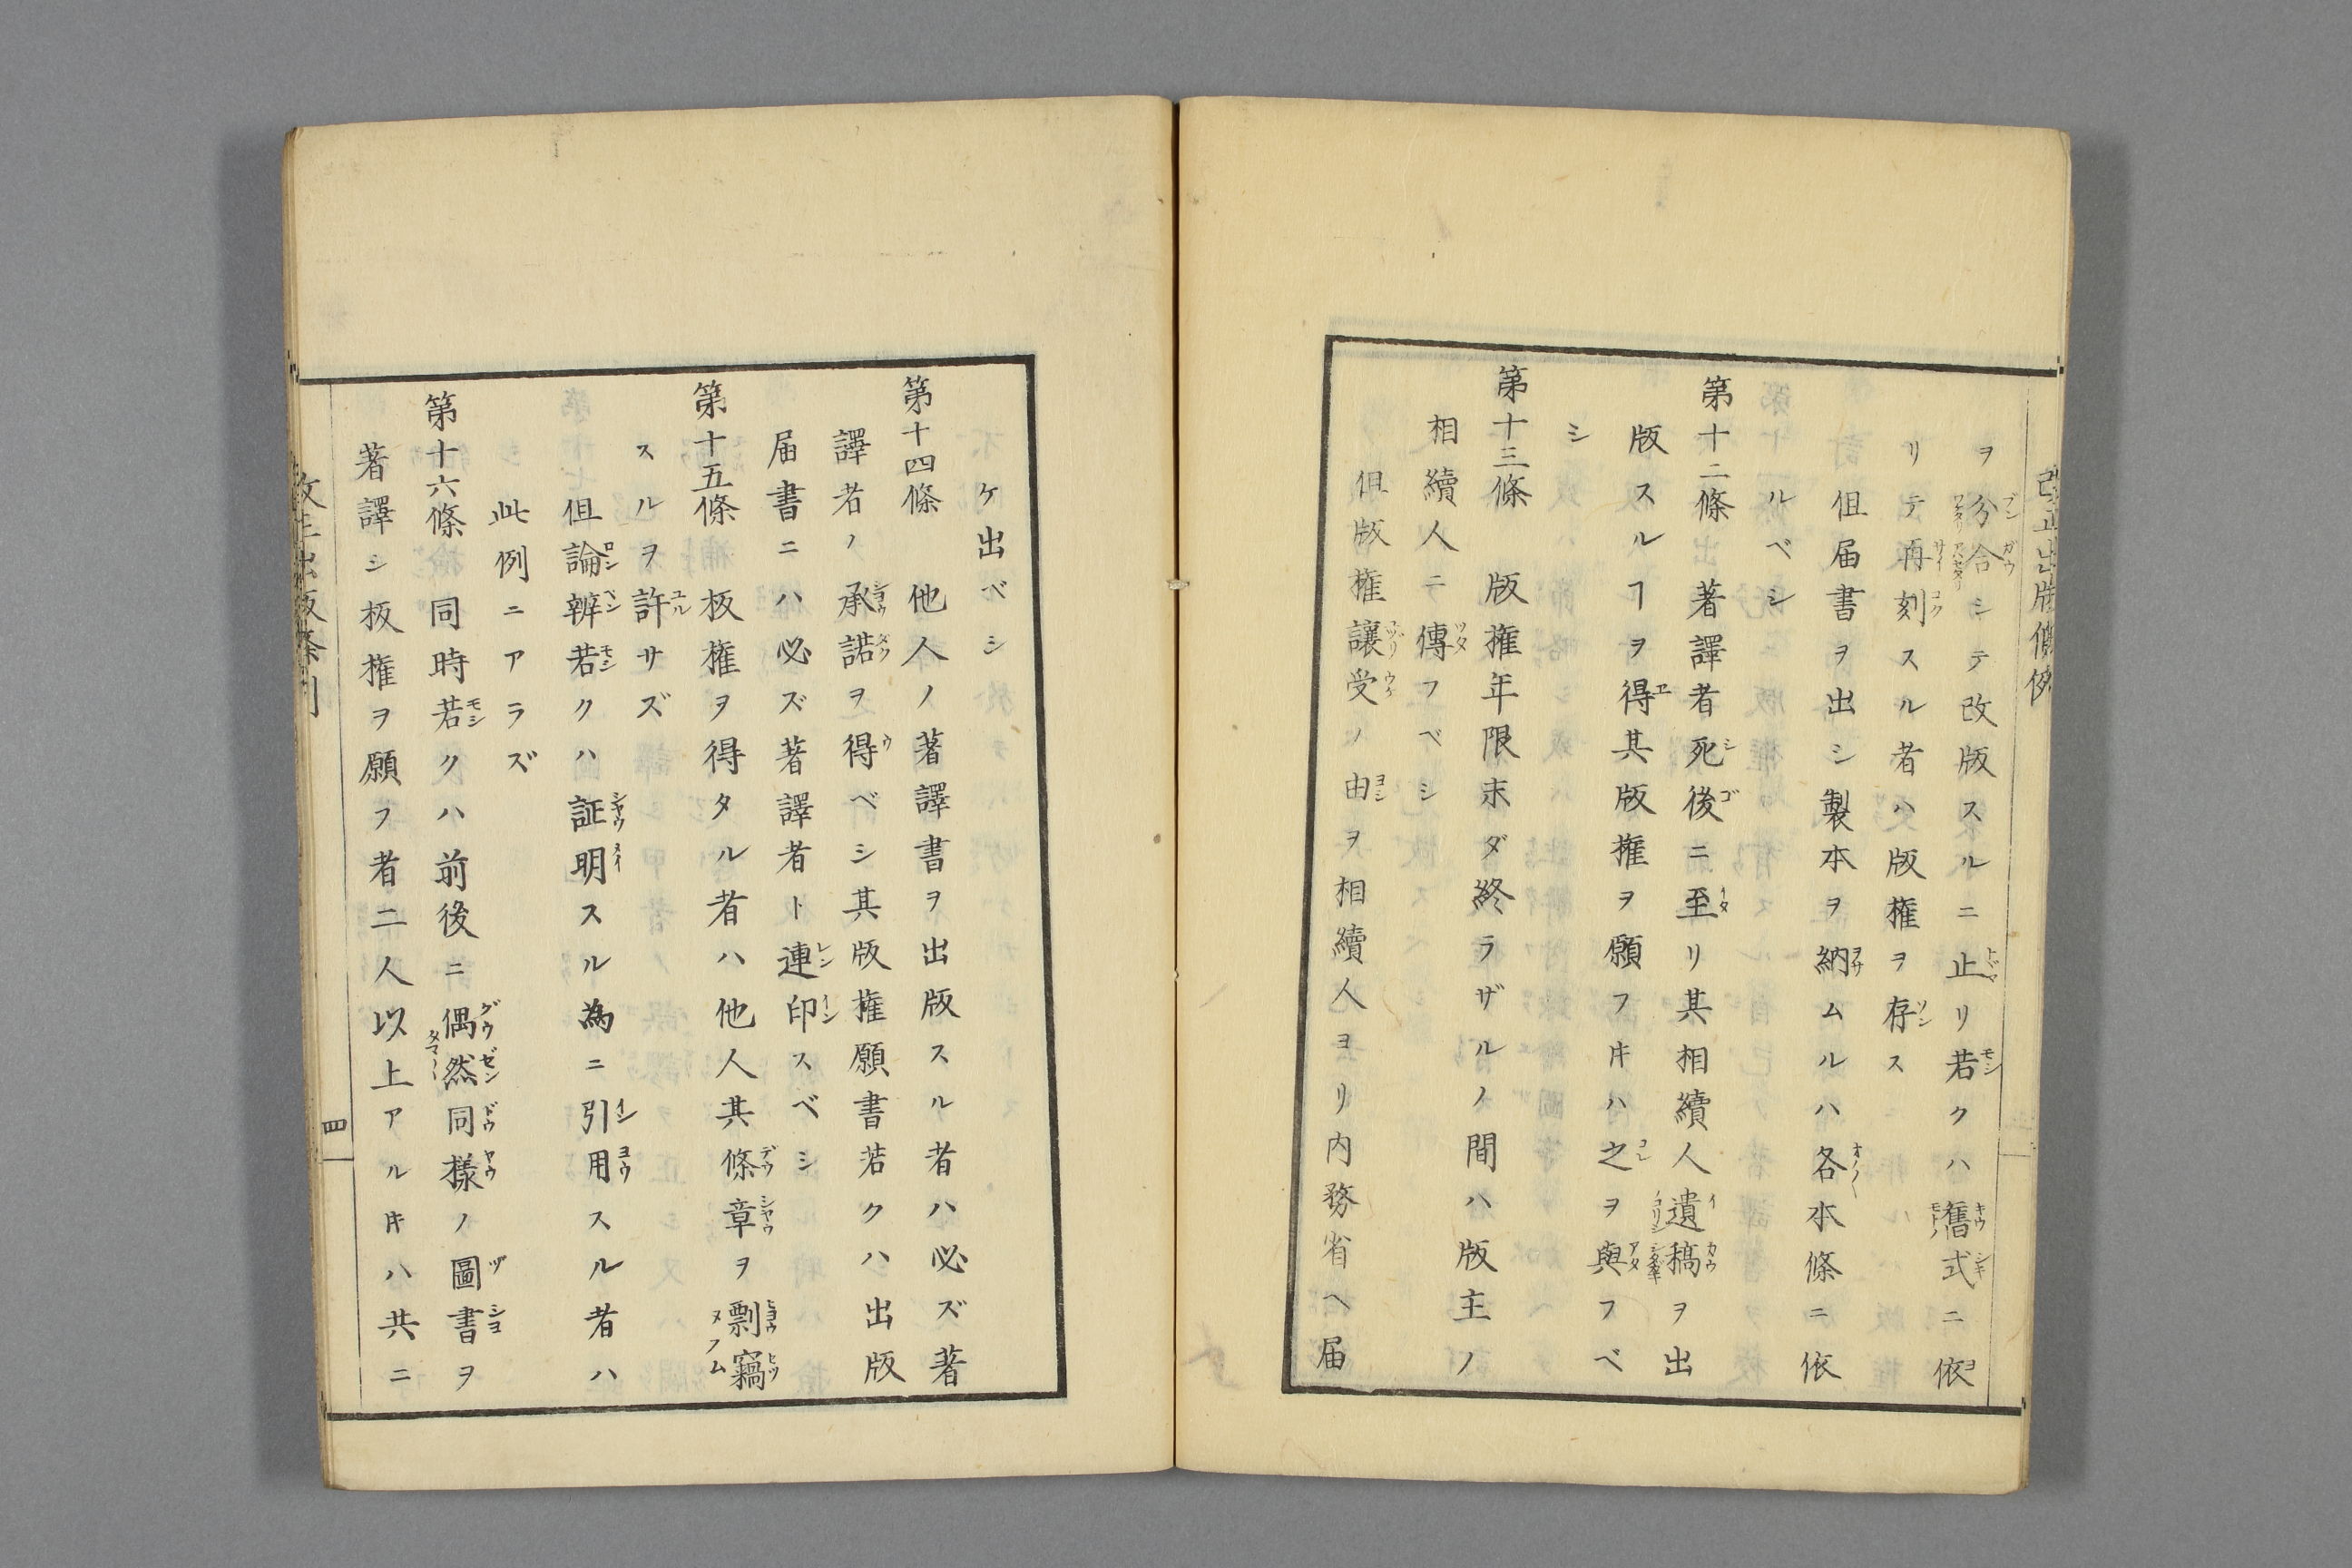 改正出版條例
ヲ分合シテ改版スルニ止リ若クハ舊式ニ依
リテ再刻スル者ハ版権ヲ存ス
但届書ヲ出シ製本ヲ納ムルハ各本條ニ依
ルベシ
第十二條 著譯者死後ニ至リ其相續人遺稿ヲ出
版スルヿヲ得其版権ヲ願フ𪜈ハ之ヲ與フベ
シ
第十三條 版権年限未ダ終ラザルノ間ハ版主ノ
相續人ニ傳フベシ
但版権讓受ノ由ヲ相續人ヨリ内務省ヘ届
ケ出ベシ
第十四條 他人ノ著譯書ヲ出版スル者ハ必ズ著
譯者ノ承諾ヲ得ベシ其版権願書若クハ出版
届書ニハ必ズ著譯者ト連印スベシ
第十五條 板権ヲ得タル者ハ他人其條章ヲ剽竊
スルヲ許サズ
但論辨若クハ証明スル為ニ引用スル者ハ
此例ニアラズ
第十六條 同時若クハ前後ニ偶然同樣ノ圖書ヲ
著譯シ板権ヲ願フ者二人以上アル𪜈ハ共ニ
改正出版条例
四